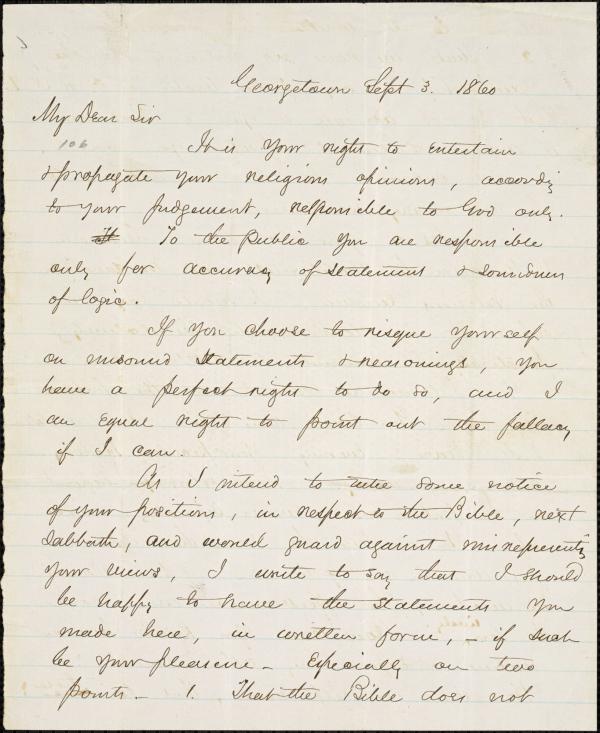 Georgetown Sept 3. 1860
My Dear Sir
106
It is your right to entertain
& propagate your religious opinions, accordg
to your judgement, responsible to God only.
It To the public you are responsible
only for accuracy of statement & soundness
of logic.
If you choose to risque yourself
on unsound statements & reasonings, you
have a perfect right to do so, and I
an equal right to point out the fallacy
if I can.
As I intend to take some notice
of your positions, in respect to the Bible, next
Sabbath, and would guard against misrepresentg
your views, I write to say that I should
be happy to have the statements you
made here, in written form, – if such
be your pleasure – Especially on two
points – 1. That the Bible does not